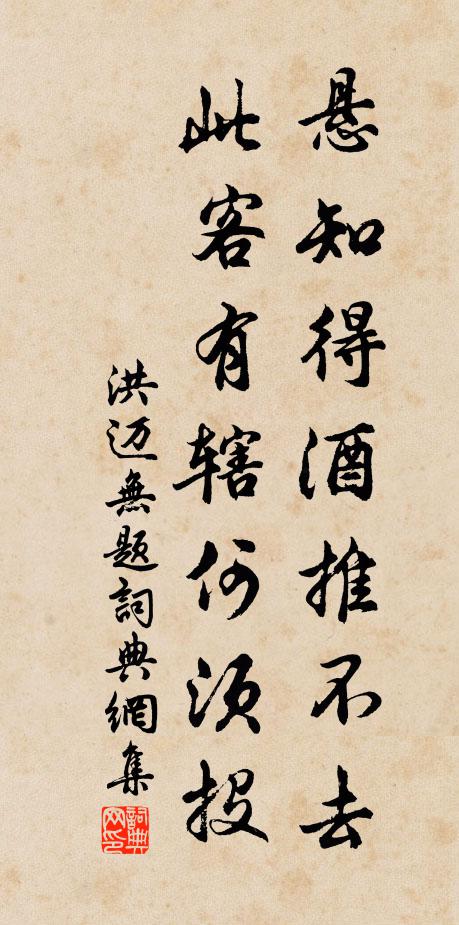 悬知得酒推不去
此客有辖何须投
洪迈無题詞典網集
詞典网印